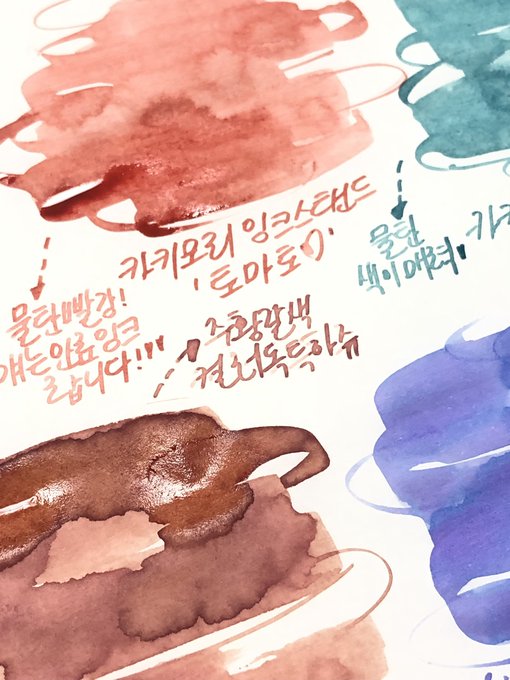 카키모리 잉크스탠드
'토마토'
물탄
색이 매력
카키
물탄 빨강!
얘는 안료잉크
랍니다!"
주황갈색
컬러 독특하슈